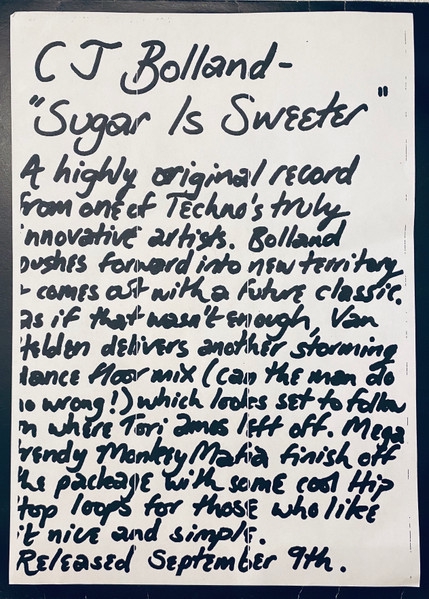 CJ Bolland-
"Sugar Is Sweeter"
A highly original record
from one of Techno's truly
innovative artists. Bolland
pushes forward into new territory
+ comes out with a future classic.
as if that wasn't enough, Van
Helden delivers another storming
dance floor mix (can the man do
no wrong!) which looks set to follow
on where Tori amos left off. Mega
trendy Monkey Mafia finish off
the package with some cool Hip
Hop loops for those who like
it nice and simple.
Released September 9th.